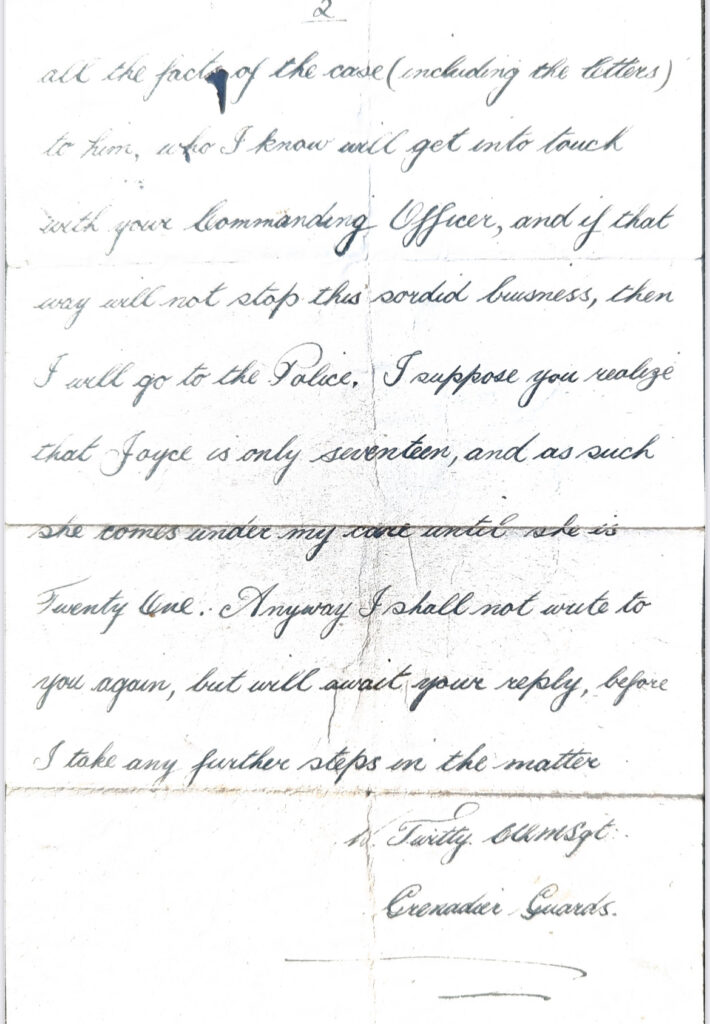 2
all the facts of the case (including the letters)
to him, who I know will get into touch
with your Commanding Officer, and if that
way will not stop this sordid buisness, then
I will go to the Police. I suppose you realize
that Joyce is only seventeen, and as such
she comes under my care until she is
Twenty One. Anyway I shall not write to
you again, but will await your reply, before
I take any further steps in the matter
W. Twitty
Grenadier Guards.